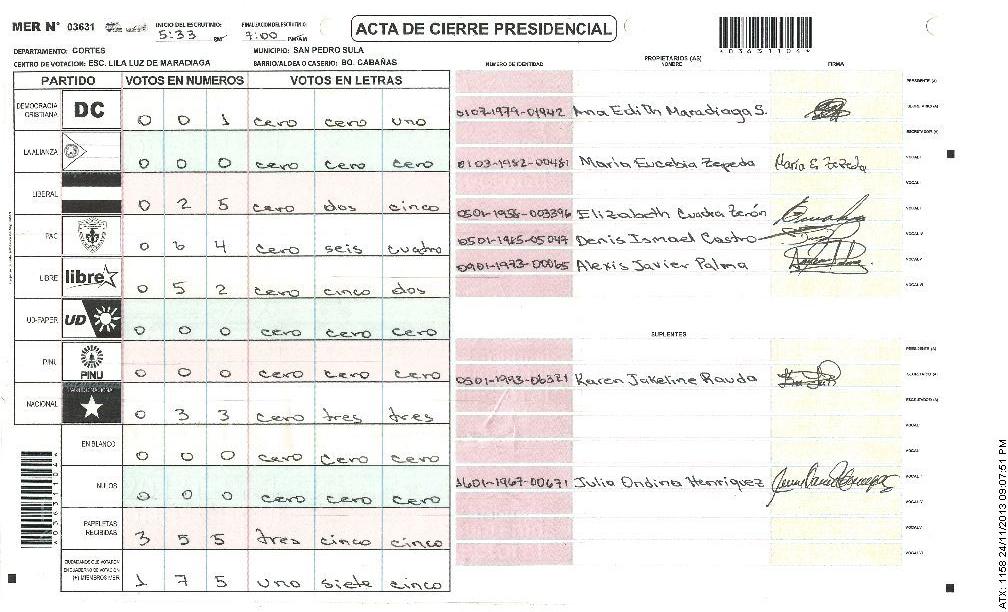 MER N° 03631 INICIO DEL ESCRUTINIO: 5:33 PM FINALIZACION DEL ESCRUTINIO: 7:00 PM/AM
ACTA DE CIERRE PRESIDENCIAL
4036311044
DEPARTAMENTO: CORTES MUNICIPIO: SAN PEDRO SULA
CENTRO DE VOTACION: ESC. LILA LUZ DE MARADIAGA BARRIO/ALDEA O CASERIO: BO. CABAÑAS
PARTIDO VOTOS EN NUMEROS VOTOS EN LETRAS
DEMOCRACIA CRISTIANA DC 0 0 1 cero cero uno
LA ALIANZA 0 0 0 cero cero cero
LIBERAL 0 2 5 cero dos cinco
PAC 0 6 4 cero seis cuatro
LIBRE libre 0 5 2 cero cinco dos
UD-FAPER UD 0 0 0 cero cero cero
PINU PINU 0 0 0 cero cero cero
NACIONAL 0 3 3 cero tres tres
EN BLANCO 0 0 0 cero cero cero
NULOS 0 0 0 cero cero cero
PAPELETAS RECIBIDAS 3 5 5 tres cinco cinco
CIUDADANOS QUE VOTARON EN CUADERNO DE VOTACION (+) MIEMBROS MER 1 7 5 uno siete cinco
PROPIETARIOS (AS)
NUMERO DE IDENTIDAD NOMBRE FIRMA
PRESIDENTE (A)
0107-1979-01942 Ana Edith Maradiaga S.
0103-1982-00481 Maria Eucebia Zepeda
0501-1958-003396 Elizabeth Cuadra Zerón
0501-1985-05047 Denis Ismael Castro
0901-1973-00065 Alexis Javier Palma
SUPLENTES
PRESIDENTE (A)
0501-1993-06321 Karen Jakeline Rauda
1601-1967-00671 Julia Ondina Henriquez
ATX: 1158 24/11/2013 09:07:51 PM